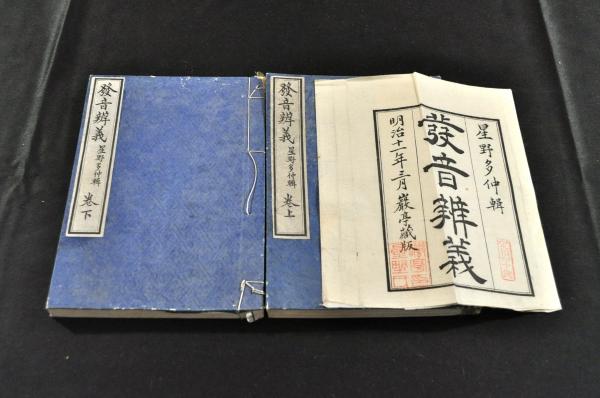 星野多仲輯
發音辨義
明治十一年三月 巖亭藏版
發音辨義 星野多仲輯 卷上
發音辨義 星野多仲輯 卷下